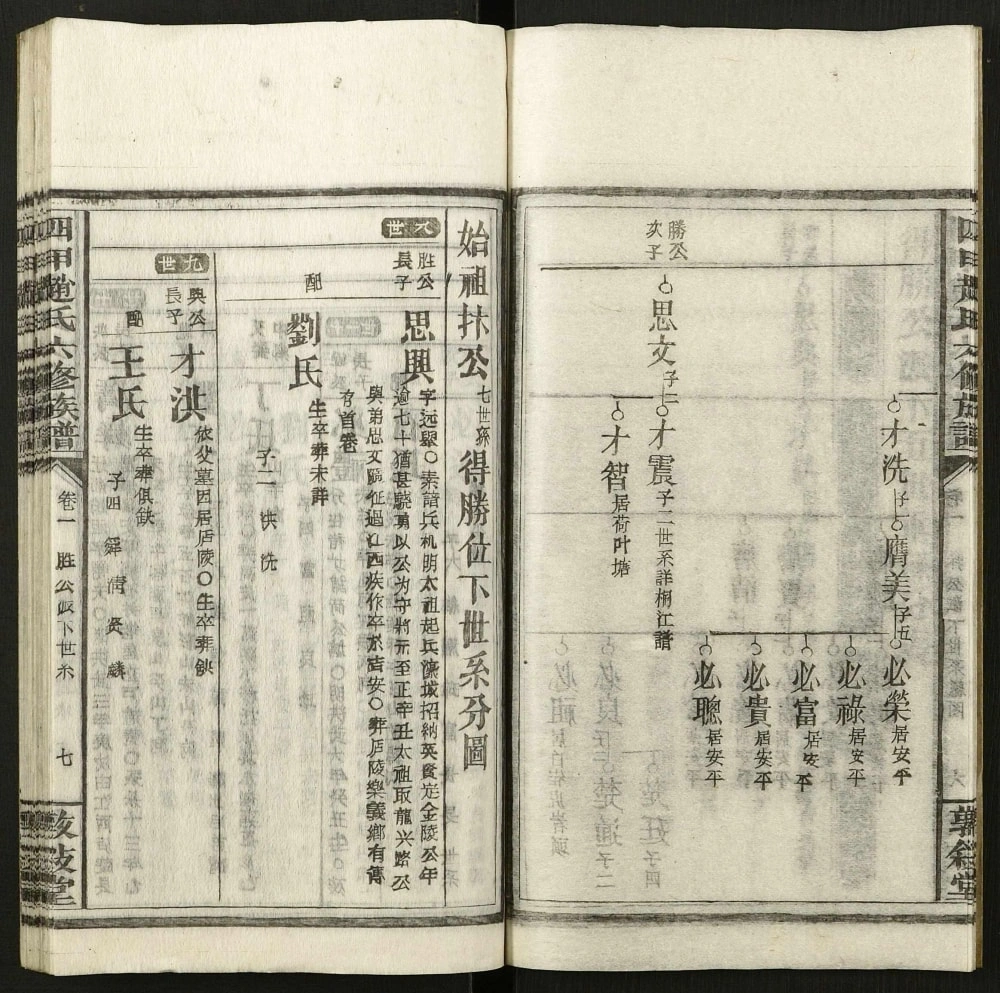 四甲趙氏六修族譜
敦敍堂
勝公
次子
思文子二
才洗子一
才震子二世系詳桐江譜
才智居荷叶塘
膺美子五
必榮居安平
必祿居安平
必富居安平
必貴居安平
必聰居安平
始祖抃公七世孫得勝位下世系分圖
八世
胜公
長子
思興
字远舉○素諳兵机明太祖起兵濠城招納英賢定金陵公年
逾七十猶甚驍勇以公为守將元至正辛丑太祖取龍兴路公
與弟思文隨征過江西疾作卒於吉安○葬庐陵樂義鄉有傳
存首卷
配
劉氏
生卒葬未詳
子二 洪 洗
九世
興公
長子
才洪
依父墓因居庐陵○生卒葬缺
配
王氏
生卒葬俱缺
子四
四甲趙氏六修族譜
卷一
胜公派下世系
七
敦敍堂